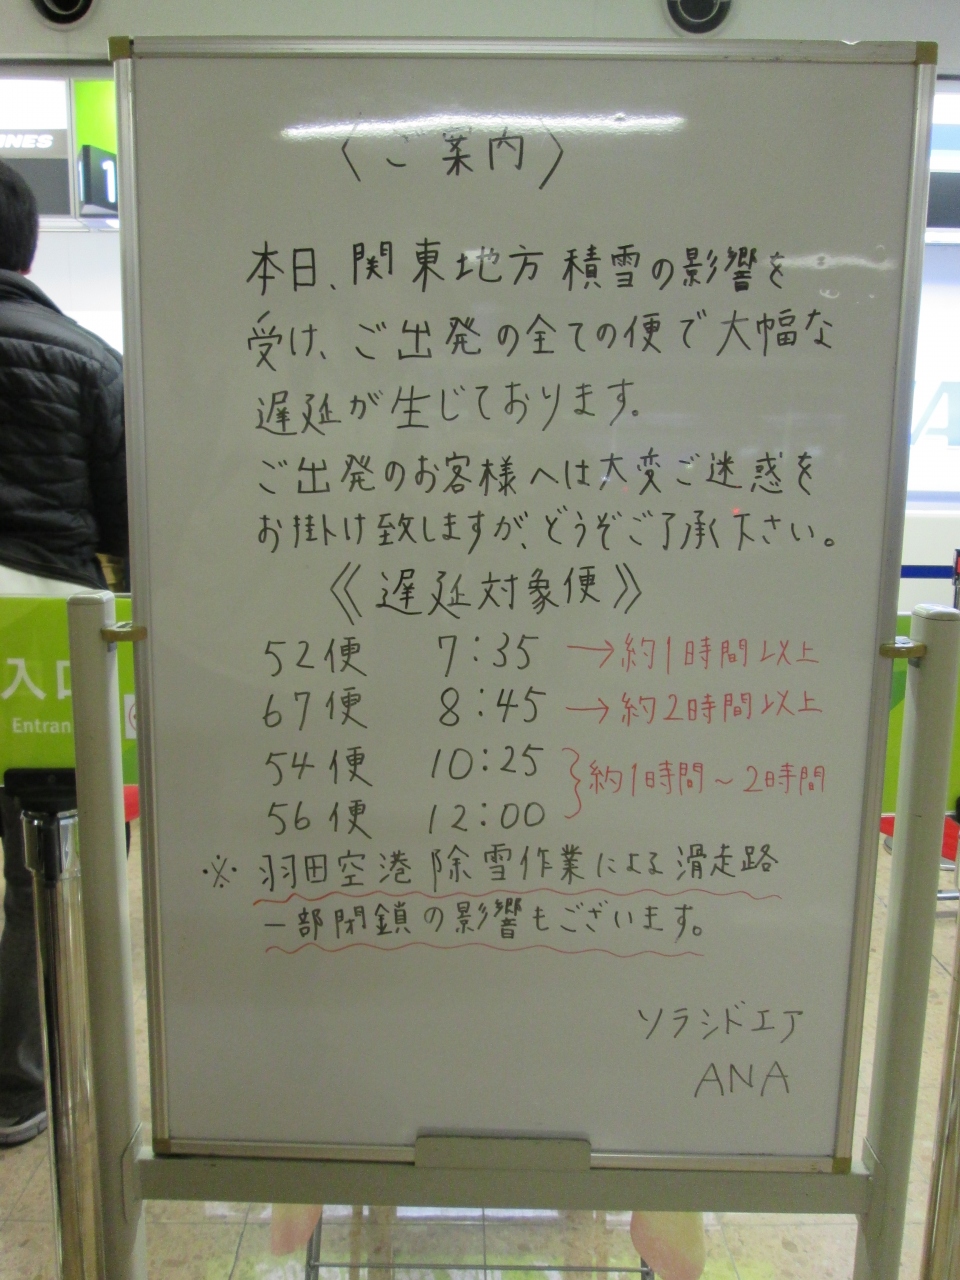 〈ご案内〉
本日、関東地方積雪の影響を
受け、ご出発の全ての便で大幅な
遅延が生じております。
ご出発のお客様へは大変ご迷惑を
お掛け致しますが、どうぞご了承下さい。
《遅延対象便》
52便 7:35 →約1時間以上
67便 8:45 →約2時間以上
54便 10:25
56便 12:00
約1時間～2時間
※羽田空港除雪作業による滑走路
一部閉鎖の影響もございます。
ソラシドエア
ANA
入口
Entran
INES
1